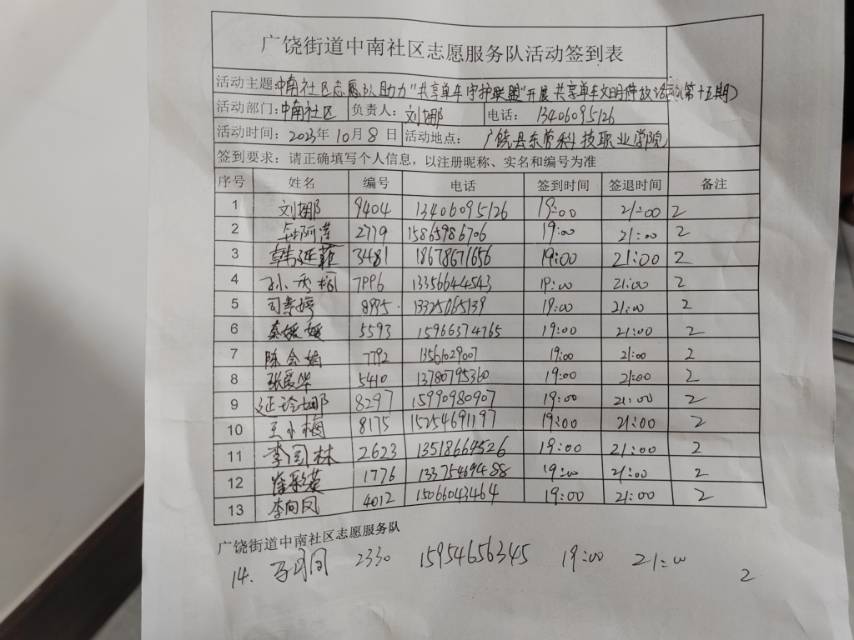 广饶街道中南社区志愿服务队活动签到表
活动主题:中南社区志愿队助力"共享单车守护联盟"开展共享单车文明停放活动(第十五期)
活动部门:中南社区 负责人:刘娜 电话:13406095126
活动时间:2023年10月8日 活动地点:广饶县东营科技职业学院
签到要求:请正确填写个人信息,以注册昵称、实名和编号为准
序号 姓名 编号 电话 签到时间 签退时间 备注
1 刘娜 9404 13406095126 19:00 21:00 2
2 2719 15865986706 19:00 21:00 2
3 韩延菲 3481 18678671656 19:00 21:00 2
4 孙秀梅 7996 13356644543 19:00 21:00 2
5 司 婷 8995 13325065139 19:00 21:00 2
6 媛媛 5593 15966374765 19:00 21:00 2
7 陈会娟 7792 13561029007 19:00 21:00 2
8 张爱华 5410 13780795360 19:00 21:00 2
9 娜 8297 15990980907 19:00 21:00 2
10 王小梅 8175 15254691197 19:00 21:00 2
11 李国林 2623 13518664526 19:00 21:00 2
12 1776 13375469488 19:00 21:00 2
13 李向凤 4012 15066043464 19:00 21:00 2
广饶街道中南社区志愿服务队
14. 2330 15954656345 19:00 21:00 2